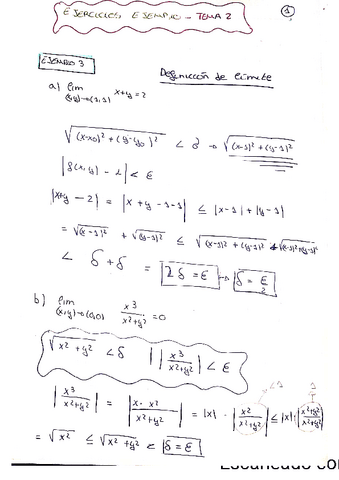 EJERCICIOS EJEMPLO - TEMA 2
1
EJEMPLO 3
Definición de límite
a) lim x+y=2
(x,y)→(1,1)
√(x-x₀)² + (y-y₀)² < δ → √(x-1)² + (y-1)²
|f(x,y) - 2| < ε
|x+y - 2| = |x + y - 1 - 1| ≤ |x-1| + |y-1|
= √(x-1)² + √(y-1)² ≤ √(x-1)² + (y-1)² + √(x-1)²+(y-1)²
< δ + δ = 2δ = ε → δ = ε/2
b) lim x³/(x²+y²) = 0
(x,y)→(0,0)
√x² + y² < δ | x³/(x²+y²) | < ε
| x³/(x²+y²) | = | x · x²/(x²+y²) | = |x| · | x²/(x²+y²) | ≤ |x| · | (x²+y²)/(x²+y²) |
= √x² ≤ √x²+y² < δ = ε
Escaneado co